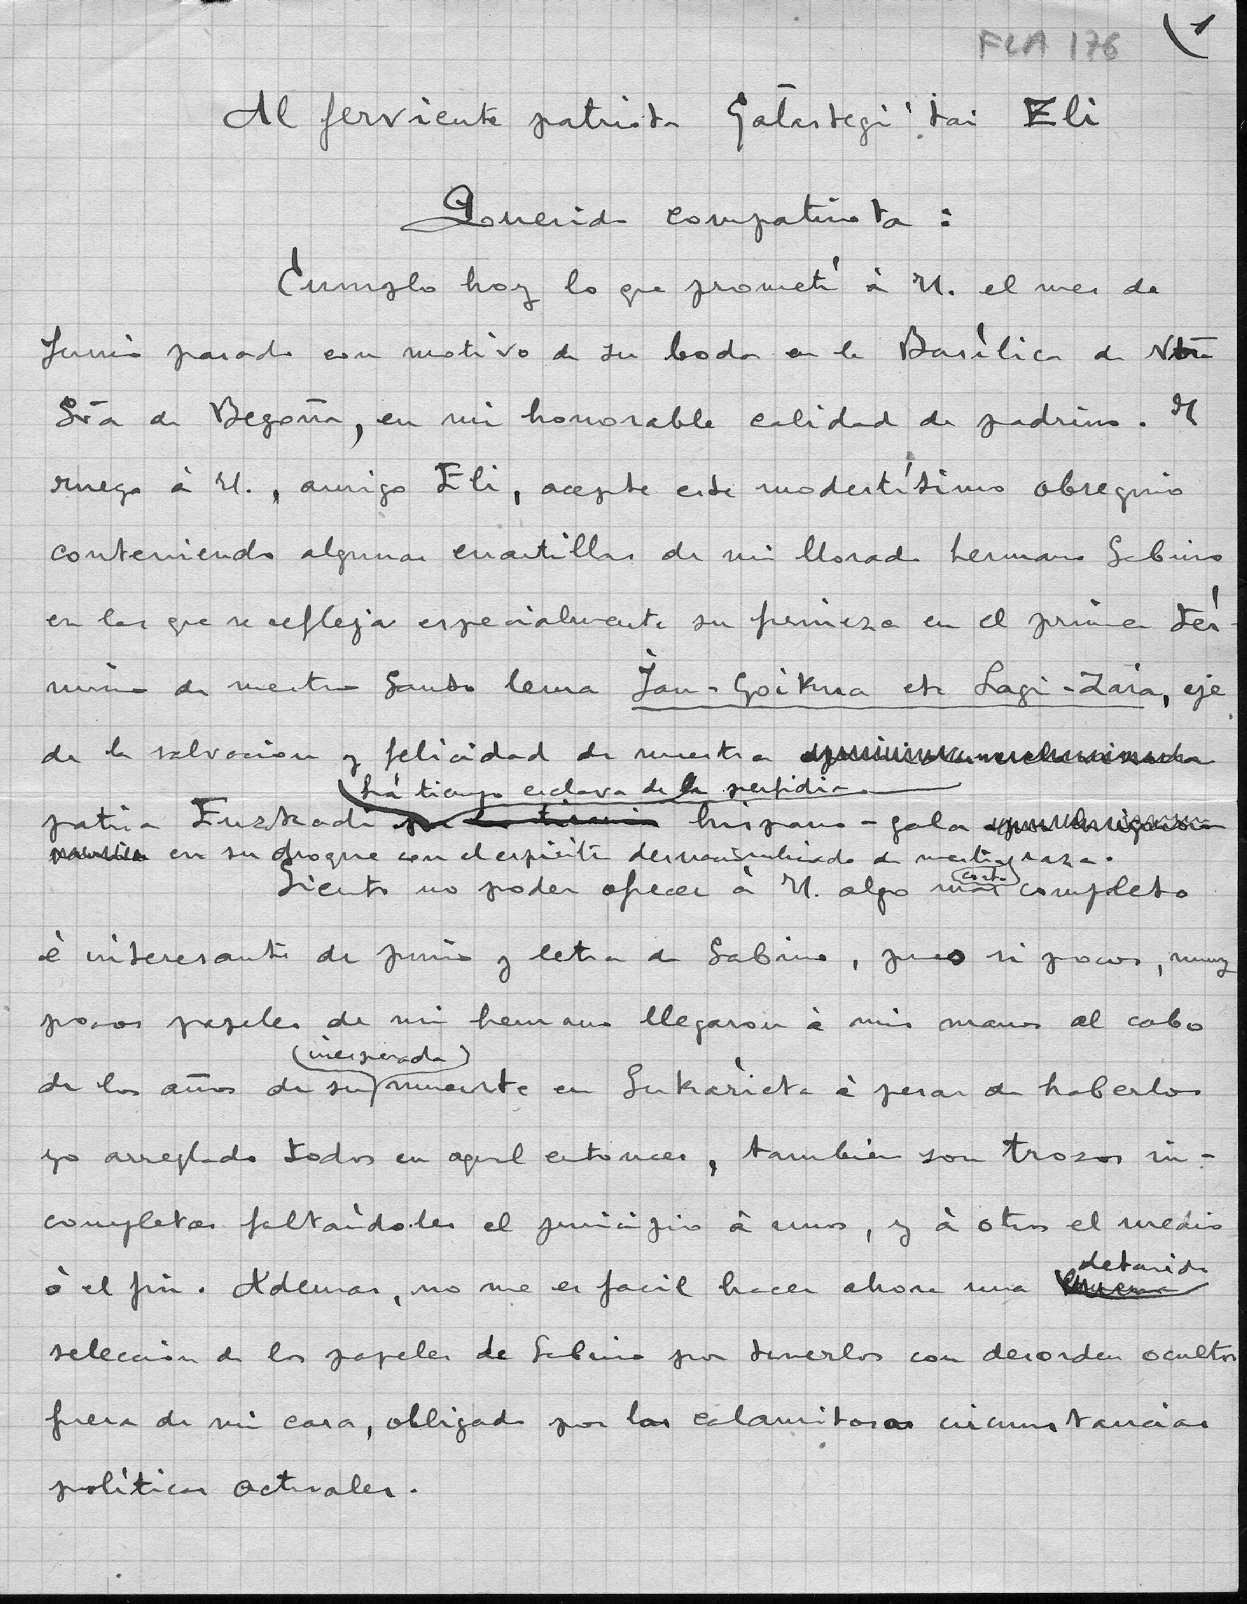 FLA 176
1
Al ferviente patriota Gatastegi'tar Eli
Querido compatriota :
Cumplo hoy lo que prometí á U. el mes de
Junio pasado con motivo de su boda en la Basílica de Ntra
Sra de Begoña, en mi honorable calidad de padrino. Y
ruego á U., amigo Eli, acepte este modestísimo obsequio
conteniendo algunas cuartillas de mi llorado hermano Sabino
en las que se refleja especialmente su firmeza en el primer tér-
mino de nuestro Santo lema Jaun-Goikua eta Lagi-Zara, eje
de la salvacion y felicidad de nuestra
há tiempo esclava de la perfidia
patria Euzkadi por la tirania hispano-gala
en su choque con el espíritu de nuestra raza.
Siento no poder ofrecer á U. algo mas (corto) completo
é interesante de puño y letra de Sabino, pues si pocos, muy
pocos papeles de mi hermano llegaron á mis manos al cabo
(inesperada)
de los años de su muerte en Sukarrieta á pesar de haberlos
yo arreglado todos en aquel entonces, tambien son trozos in-
completos faltándoles el principio á unos, y á otros el medio
ó el fin. Ademas, no me es facil hacer ahora una
detenida
seleccion de los papeles de Sabino por tenerlos con desorden ocultos
fuera de mi casa, obligado por las calamitosas circunstancias
políticas actuales.